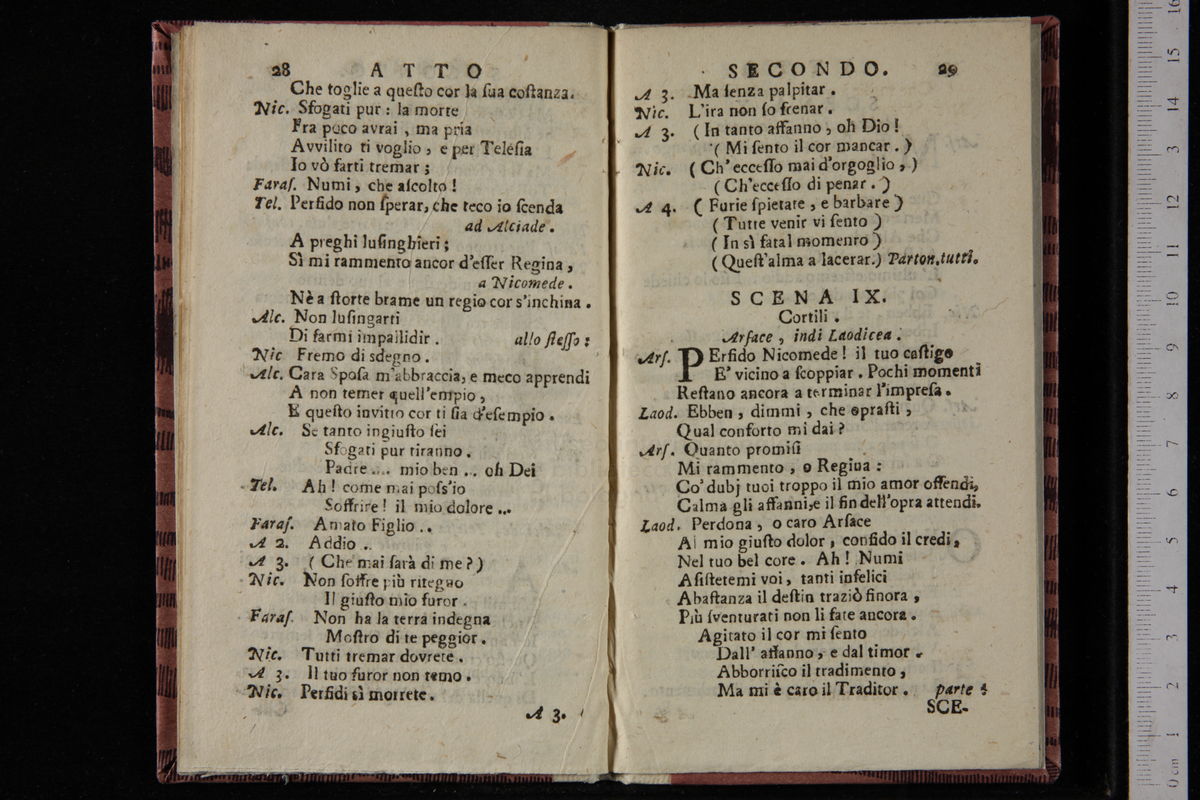 28 ATTO
Che toglie a queſto cor la ſua coſtanza.
Nic. Sfogati pur : la morte
Fra poco avrai , ma pria
Avvilito ti voglio , e per Teleſia
Io vò farti tremar ;
Faraſ. Numi, che aſcolto !
Tel. Perfido non ſperar, che teco io ſcenda
ad Alciade .
A preghi luſinghieri ;
Sì mi rammento ancor d'eſſer Regina ,
a Nicomede .
Nè a ſtorte brame un regio cor s'inchina .
Alc. Non luſingarti
Di farmi impallidir . allo ſteſſo :
Nic Fremo di sdegno .
Alc. Cara Spoſa m'abbraccia, e meco apprendi
A non temer quell'empio ,
E queſto invitto cor ti ſia d'eſempio .
Alc. Se tanto ingiuſto ſei
Sfogati pur tiranno .
Padre .... mio ben ... oh Dei
Tel. Ah ! come mai poſs'io
Soffrire ! il mio dolore ...
Faraſ. Amato Figlio ..
A 2. Addio ..
A 3. ( Che mai ſarà di me ? )
Nic. Non ſoffre più ritegno
Il giuſto mio furor .
Faraſ. Non ha la terra indegna
Moſtro di te peggior .
Nic. Tutti tremar dovrete .
A 3. Il tuo furor non temo .
Nic. Perfidi sì morrete .
A 3.
SECONDO. 29
A 3. Ma ſenza palpitar .
Nic. L'ira non ſo frenar .
A 3. ( In tanto affanno , oh Dio !
( Mi ſento il cor mancar . )
Nic. ( Ch' ecceſſo mai d'orgoglio , )
( Ch'ecceſſo di penar . )
A 4. ( Furie ſpietate , e barbare )
( Tutte venir vi ſento )
( In sì fatal momento )
( Queſt'alma a lacerar.) Parton.tutti.
SCENA IX.
Cortili .
Arſace , indi Laodicea .
Arſ. PErfido Nicomede ! il tuo caſtigo
E' vicino a ſcoppiar . Pochi momenti
Reſtano ancora a terminar l'impreſa .
Laod. Ebben , dimmi , che opraſti ,
Qual conforto mi dai ?
Arſ. Quanto promiſi
Mi rammento , o Regina :
Co' dubj tuoi troppo il mio amor offendi,
Calma gli affanni,e il fin dell'opra attendi.
Laod. Perdona , o caro Arſace
Al mio giuſto dolor , confido il credi ,
Nel tuo bel core . Ah ! Numi
Aſiſtetemi voi , tanti infelici
Abaſtanza il deſtin traziò finora ,
Più ſventurati non li fate ancora .
Agitato il cor mi ſento
Dall' affanno , e dal timor .
Abborriſco il tradimento ,
Ma mi è caro il Traditor . parte :
SCE-